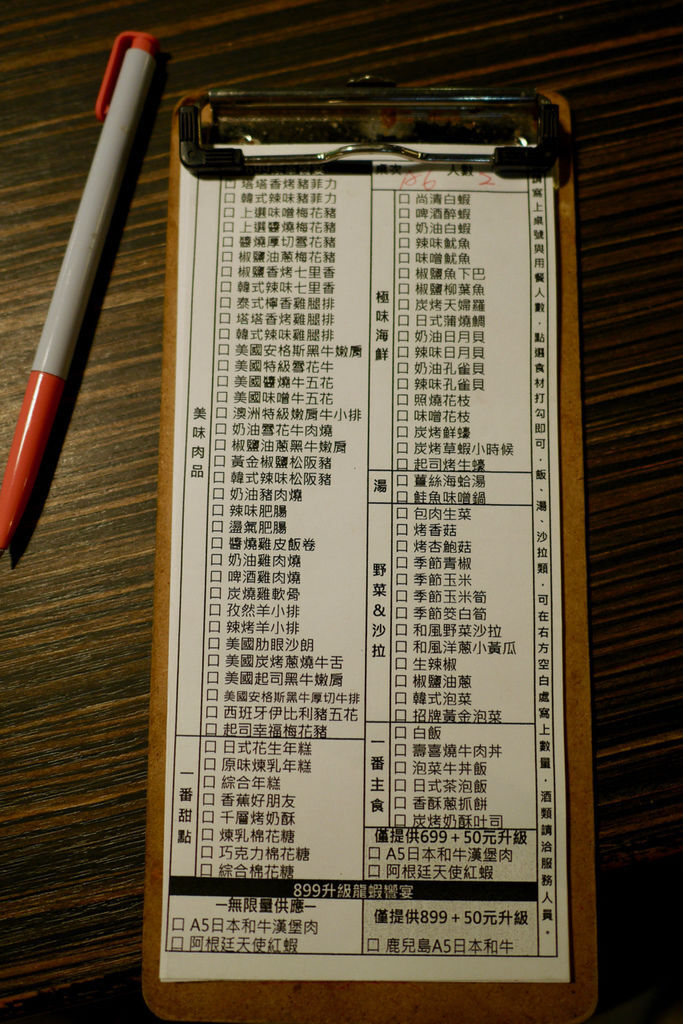 桌次 186 人數 2
美味肉品
塔塔香烤豬菲力
韓式辣味豬菲力
上選味噌梅花豬
上選醬燒梅花豬
醬燒厚切雪花豬
椒鹽油蔥梅花豬
椒鹽香烤七里香
韓式辣味七里香
泰式檸香雞腿排
塔塔香烤雞腿排
韓式辣味雞腿排
美國安格斯黑牛嫩肩
美國特級雪花牛
美國醬燒牛五花
美國味噌牛五花
澳洲特級嫩肩牛小排
奶油雪花牛肉燒
椒鹽油蔥黑牛嫩肩
黃金椒鹽松阪豬
韓式辣味松阪豬
奶油豬肉燒
辣味肥腸
盪氣肥腸
醬燒雞皮飯卷
奶油雞肉燒
啤酒雞肉燒
炭燒雞軟骨
孜然羊小排
辣烤羊小排
美國肋眼沙朗
美國炭烤蔥燒牛舌
美國起司黑牛嫩肩
美國安格斯黑牛厚切牛排
西班牙伊比利豬五花
起司幸福梅花豬
一番甜點
日式花生年糕
原味煉乳年糕
綜合年糕
香蕉好朋友
千層烤奶酥
煉乳棉花糖
巧克力棉花糖
綜合棉花糖
極味海鮮
尚清白蝦
啤酒醉蝦
奶油白蝦
辣味魷魚
味噌魷魚
椒鹽魚下巴
椒鹽柳葉魚
炭烤天婦羅
日式蒲燒鯛
奶油日月貝
辣味日月貝
奶油孔雀貝
辣味孔雀貝
照燒花枝
味噌花枝
炭烤鮮蠔
炭烤草蝦小時候
起司烤生蠔
湯
薑絲海蛤湯
鮭魚味噌鍋
野菜&沙拉
包肉生菜
烤香菇
烤杏鮑菇
季節青椒
季節玉米
季節玉米筍
季節筊白筍
和風野菜沙拉
和風洋蔥小黃瓜
生辣椒
椒鹽油蔥
韓式泡菜
招牌黃金泡菜
一番主食
白飯
壽喜燒牛肉丼
泡菜牛丼飯
日式茶泡飯
香酥蔥抓餅
炭烤奶酥吐司
僅提供699+50元升級
A5日本和牛漢堡肉
阿根廷天使紅蝦
899升級龍蝦饗宴
—無限量供應—
A5日本和牛漢堡肉
阿根廷天使紅蝦
僅提供899+50元升級
鹿兒島A5日本和牛
請寫上桌號與用餐人數．點選食材打勾即可．飯、湯、沙拉類．可在右方空白處寫上數量．酒類請洽服務人員。